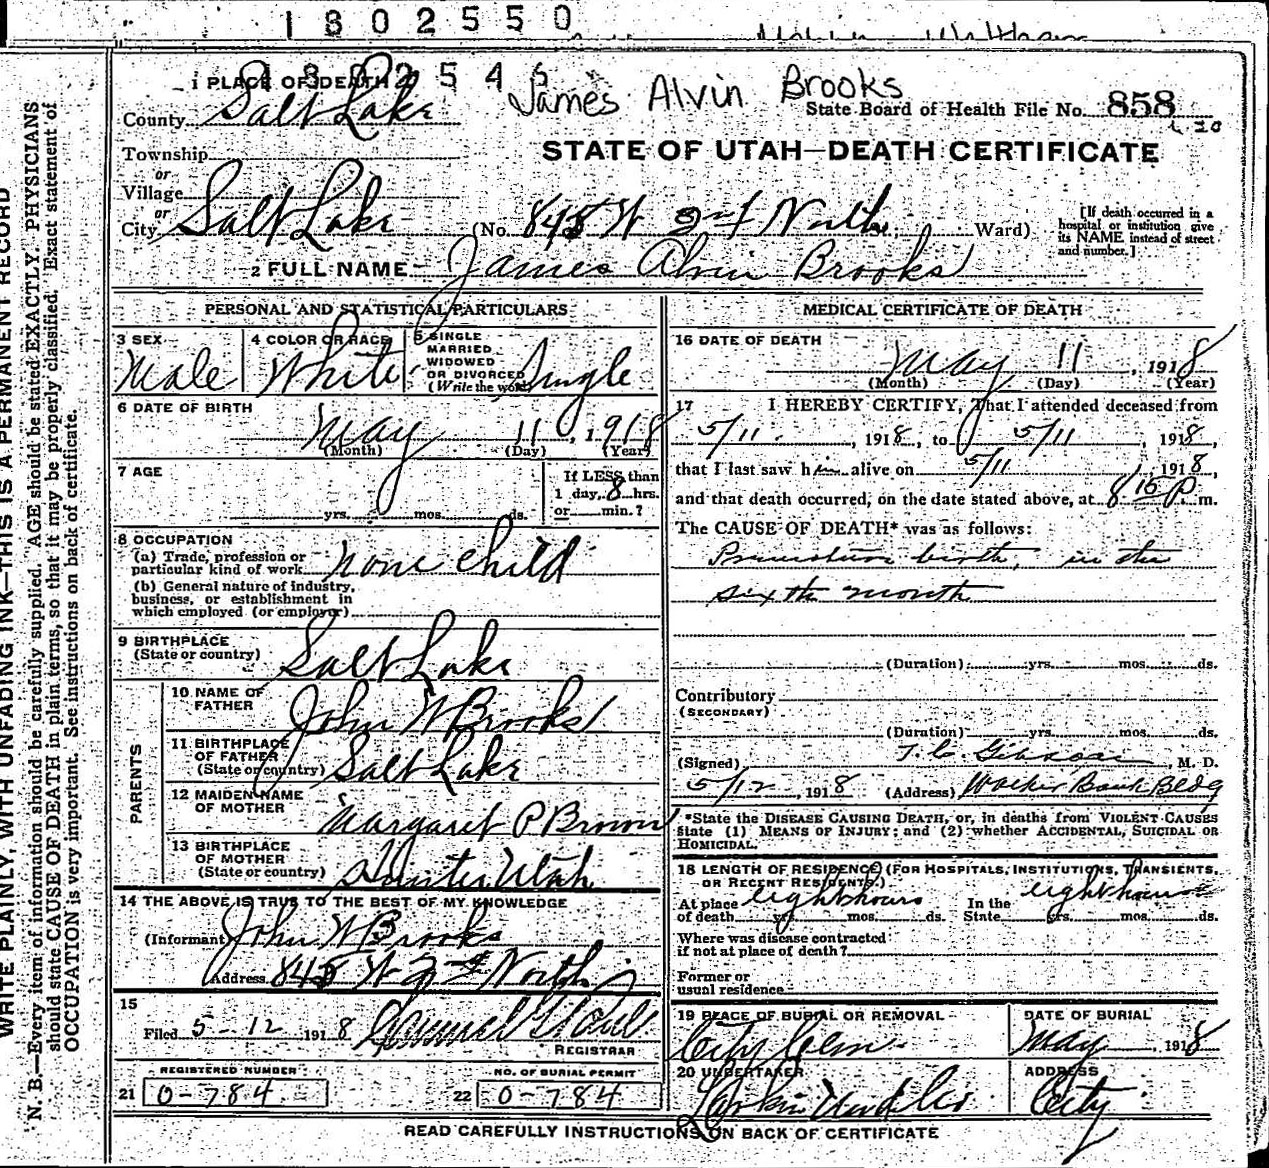 1302550
1302546
James Alvin Brooks
1 PLACE OF DEATH
County Salt Lake
State Board of Health File No. 858
Township
or
Village
or
City Salt Lake (No. 845 W 2nd North St. Ward)
[If death occurred in a
hospital or institution give
its NAME instead of street
and number.]
STATE OF UTAH—DEATH CERTIFICATE
2 FULL NAME James Alvin Brooks
PERSONAL AND STATISTICAL PARTICULARS
3 SEX Male
4 COLOR OR RACE White
5 SINGLE
MARRIED
WIDOWED
OR DIVORCED
(Write the word) Single
6 DATE OF BIRTH
May 11, 1918
(Month) (Day) (Year)
7 AGE
yrs. mos. ds.
If LESS than
1 day, 8 hrs.
or min.?
8 OCCUPATION
(a) Trade, profession or
particular kind of work none child
(b) General nature of industry,
business, or establishment in
which employed (or employer)
9 BIRTHPLACE
(State or country) Salt Lake
PARENTS
10 NAME OF
FATHER John W Brooks
11 BIRTHPLACE
OF FATHER
(State or country) Salt Lake
12 MAIDEN NAME
OF MOTHER Margaret P Brown
13 BIRTHPLACE
OF MOTHER
(State or country) Hunter Utah
14 THE ABOVE IS TRUE TO THE BEST OF MY KNOWLEDGE
(Informant John W Brooks
Address 845 W 2nd North
15
Filed 5-12 1918
REGISTRAR
REGISTERED NUMBER
21 0-784
NO. OF BURIAL PERMIT
22 0-784
MEDICAL CERTIFICATE OF DEATH
16 DATE OF DEATH
May 11, 1918
(Month) (Day) (Year)
17 I HEREBY CERTIFY, That I attended deceased from
5/11, 1918, to 5/11, 1918,
that I last saw him alive on 5/11, 1918,
and that death occurred, on the date stated above, at 8 15 P. m.
The CAUSE OF DEATH* was as follows:
Premature birth, in the
sixth month
(Duration) yrs. mos. ds.
Contributory
(SECONDARY)
(Duration) yrs. mos. ds.
(Signed) T. C. Gibson, M. D.
5/12, 1918 (Address) Walker Bank Bldg
*State the DISEASE CAUSING DEATH, or, in deaths from VIOLENT CAUSES
state (1) MEANS OF INJURY; and (2) whether ACCIDENTAL, SUICIDAL OR
HOMICIDAL.
18 LENGTH OF RESIDENCE (FOR HOSPITALS, INSTITUTIONS, TRANSIENTS,
OR RECENT RESIDENTS.)
At place
of death eight hours yrs. mos. ds.
In the
State eight hours yrs. mos. ds.
Where was disease contracted
if not at place of death?
Former or
usual residence
19 PLACE OF BURIAL OR REMOVAL
City Cem.
DATE OF BURIAL
May 1918
20 UNDERTAKER
ADDRESS
City
READ CAREFULLY INSTRUCTIONS ON BACK OF CERTIFICATE
WRITE PLAINLY, WITH UNFADING INK—THIS IS A PERMANENT RECORD
N. B.—Every item of information should be carefully supplied. AGE should be stated EXACTLY. PHYSICIANS
should state CAUSE OF DEATH in plain terms, so that it may be properly classified. Exact statement of
OCCUPATION is very important. See instructions on back of certificate.